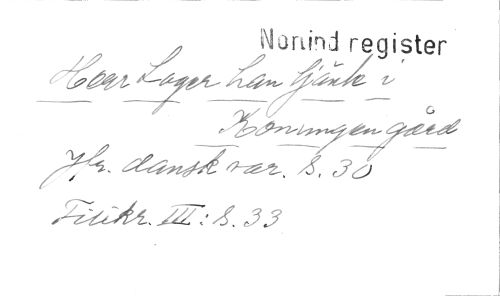 Nonind register
Herr Lager han tjänte i
Konungen gård
Jfr. dansk var. S. 30
Filikr. III: S. 33